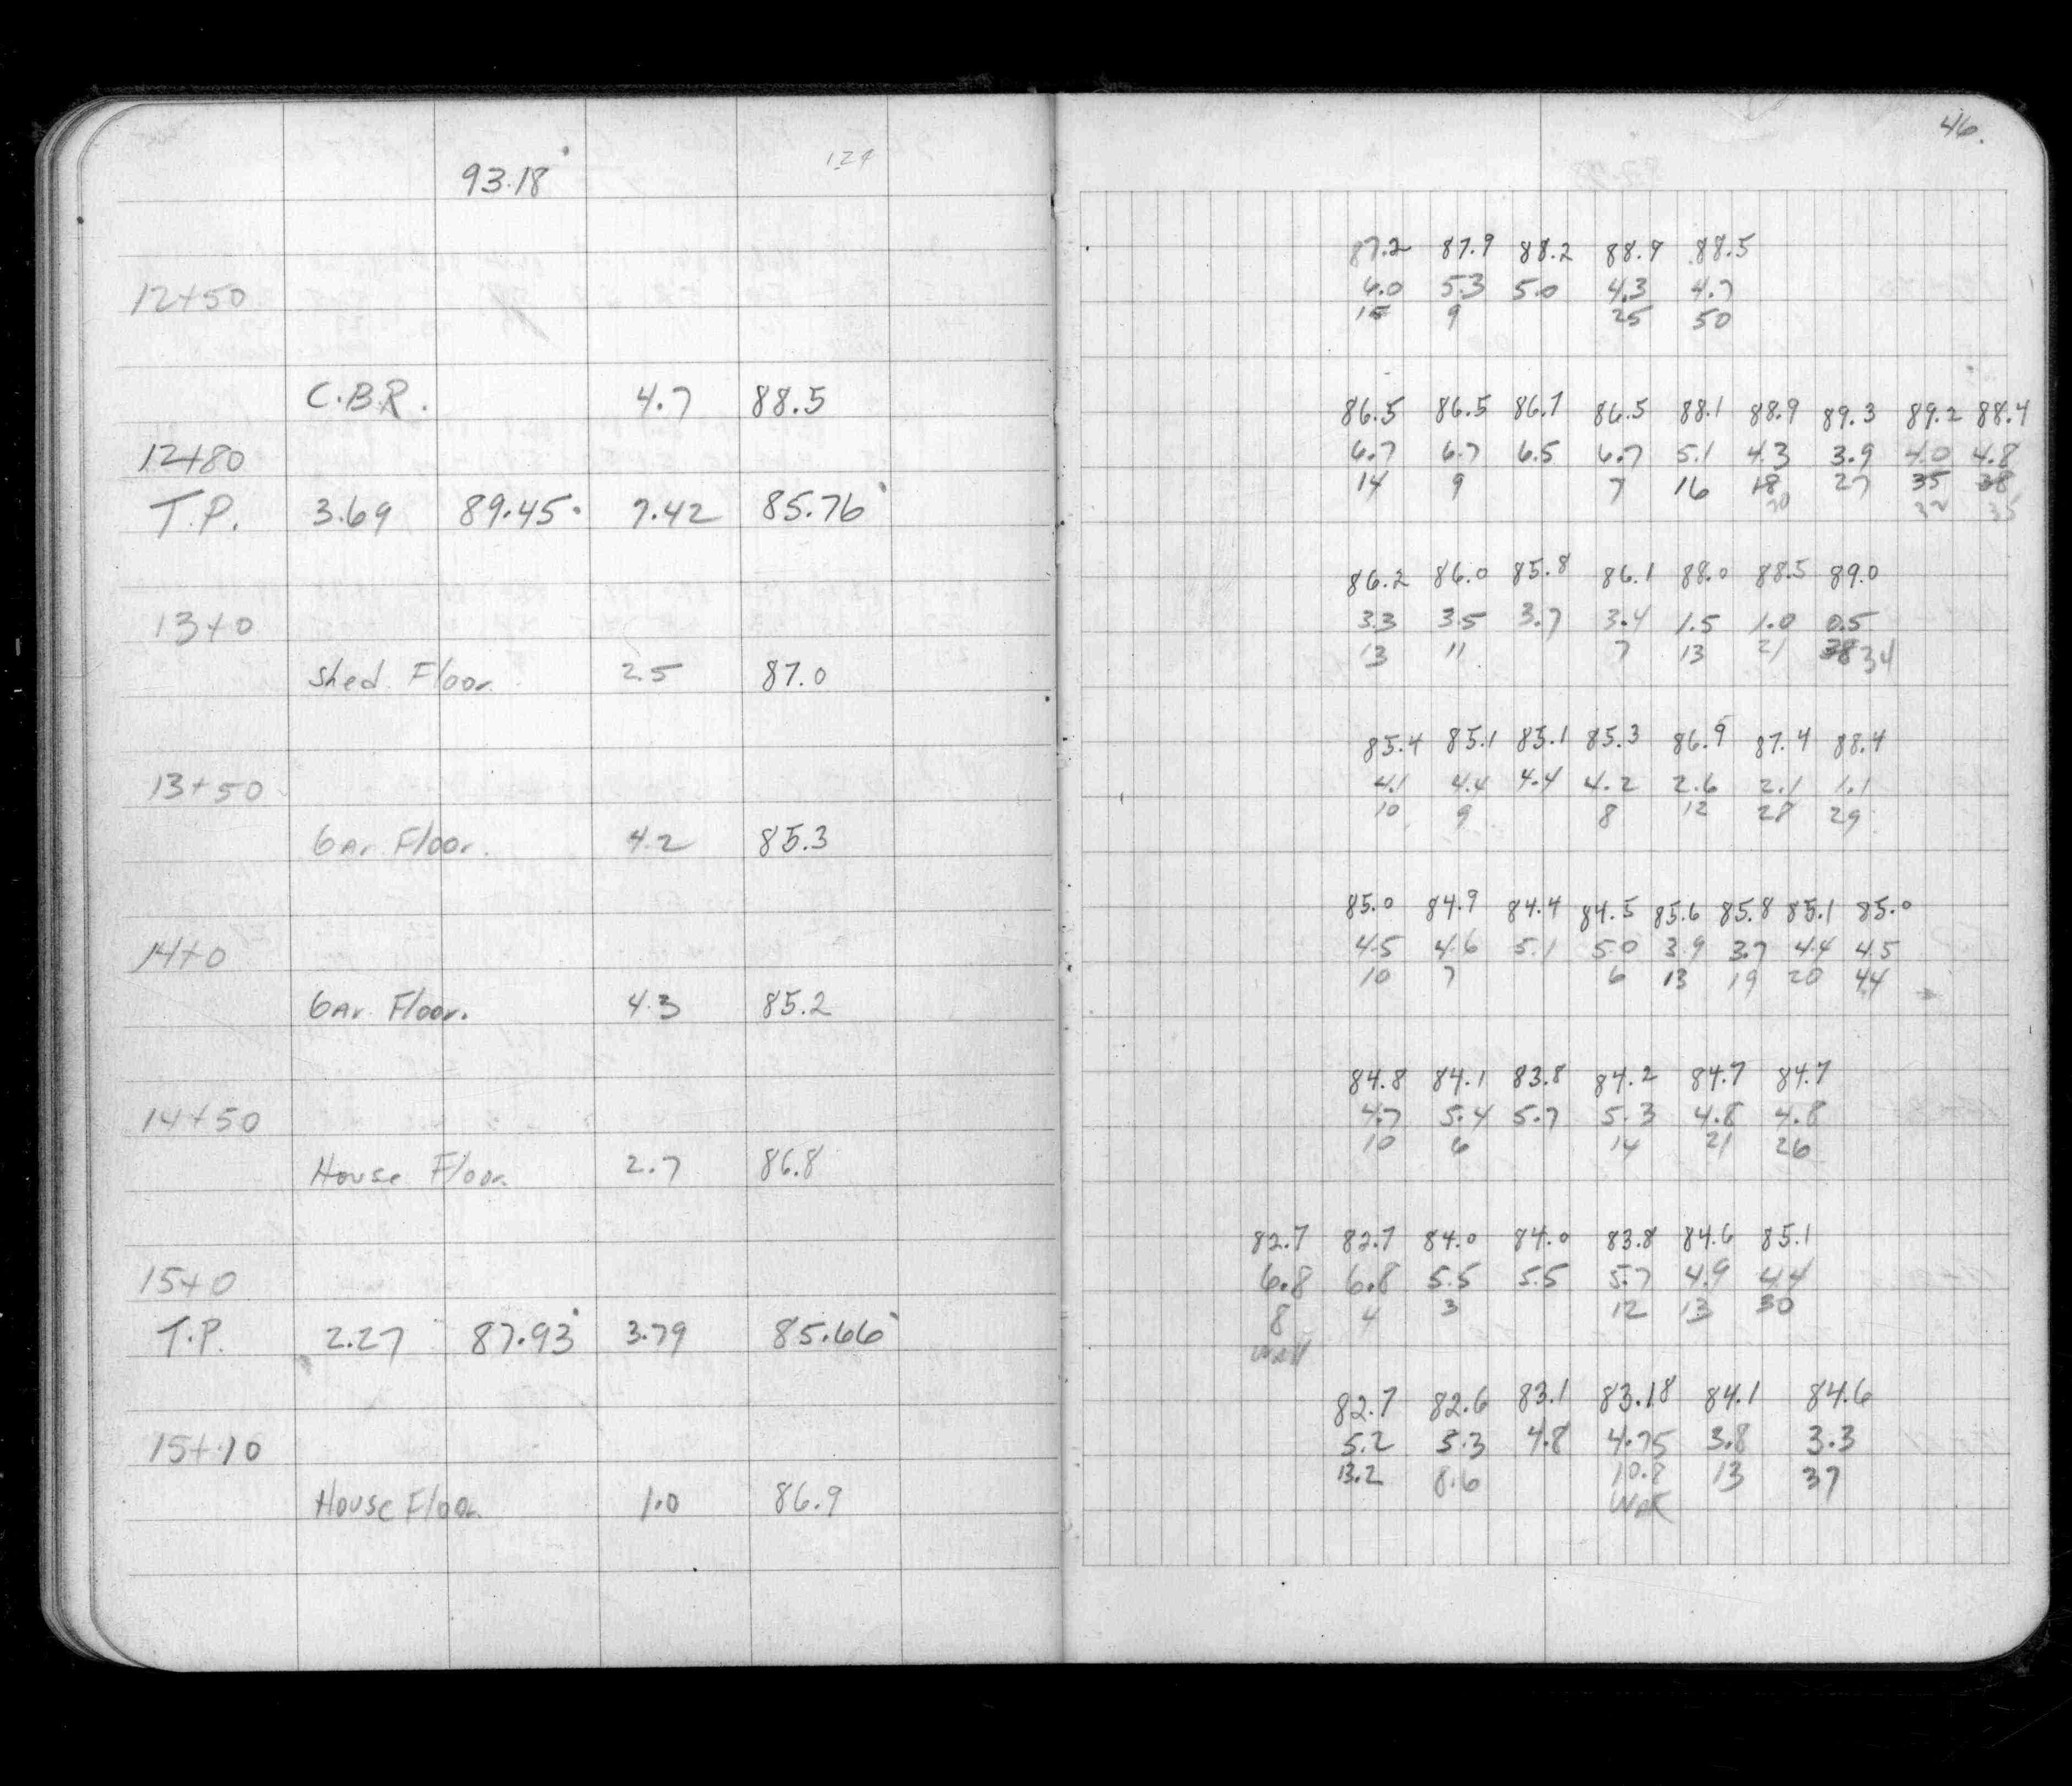 93.18
12+50
C.B.R. 4.7 88.5
12+80
T.P. 3.69 89.45 7.42 85.76
13+0
Shed Floor. 2.5 87.0
13+50
Gar Floor. 4.2 85.3
14+0
Gar Floor. 4.3 85.2
14+50
House Floor. 2.7 86.8
15+0
T.P. 2.27 87.93 3.79 85.66
15+10
House Floor. 1.0 86.9
46.
87.2 87.9 88.2 88.9 88.5
6.0 5.3 5.0 4.3 4.7
15 9 25 50
86.5 86.5 86.7 86.5 88.1 88.9 89.3 89.2 88.4
6.7 6.7 6.5 6.7 5.1 4.3 3.9 4.0 4.8
14 9 7 16 18 27 35 38
20 32 35
86.2 86.0 85.8 86.1 88.0 88.5 89.0
3.3 3.5 3.7 3.4 1.5 1.0 0.5
13 11 7 13 21 38 34
85.4 85.1 85.1 85.3 86.9 87.4 88.4
4.1 4.4 4.4 4.2 2.6 2.1 1.1
10 9 8 12 28 29
85.0 84.9 84.4 84.5 85.6 85.8 85.1 85.0
4.5 4.6 5.1 5.0 3.9 3.7 4.4 4.5
10 7 6 13 19 20 44
84.8 84.1 83.8 84.2 84.7 84.7
4.7 5.4 5.7 5.3 4.8 4.8
10 6 14 21 26
82.7 82.7 84.0 84.0 83.8 84.6 85.1
6.8 6.8 5.5 5.5 5.7 4.9 4.4
8 4 3 12 13 30
Wall
82.7 82.6 83.1 83.18 84.1 84.6
5.2 5.3 4.8 4.75 3.8 3.3
13.2 8.6 10.8 13 37